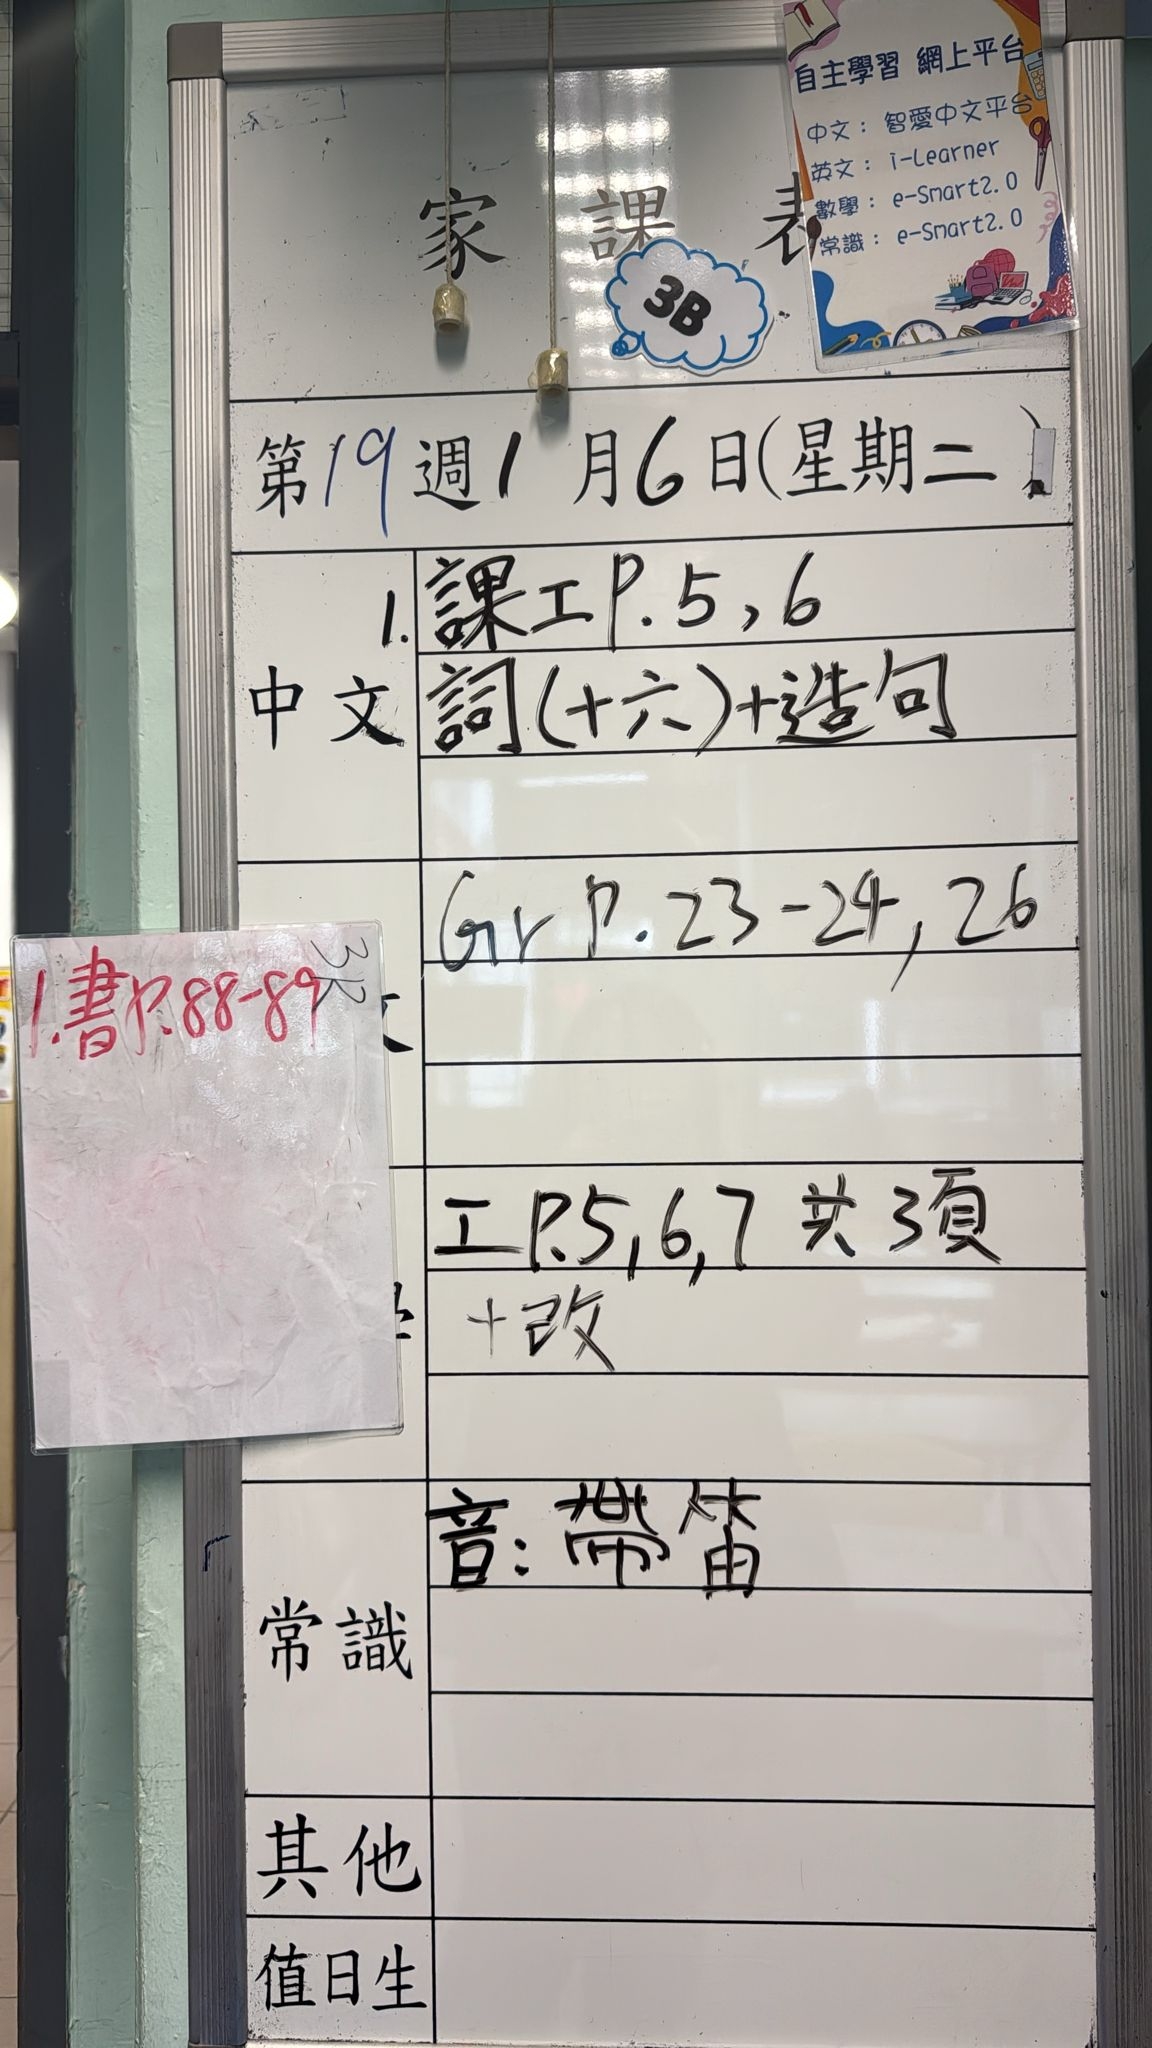 自主學習 網上平台
中文：智愛中文平台
英文：i-Learner
數學：e-Smart2.0
常識：e-Smart2.0
家課表
3B
第19週1月6日(星期二)
中文
1.課工P.5,6
詞(十六)+造句
Gr P.23-24,26
1.書P.88-89
工P.5,6,7 共3頁
+改
常識
音:帶笛
其他
值日生